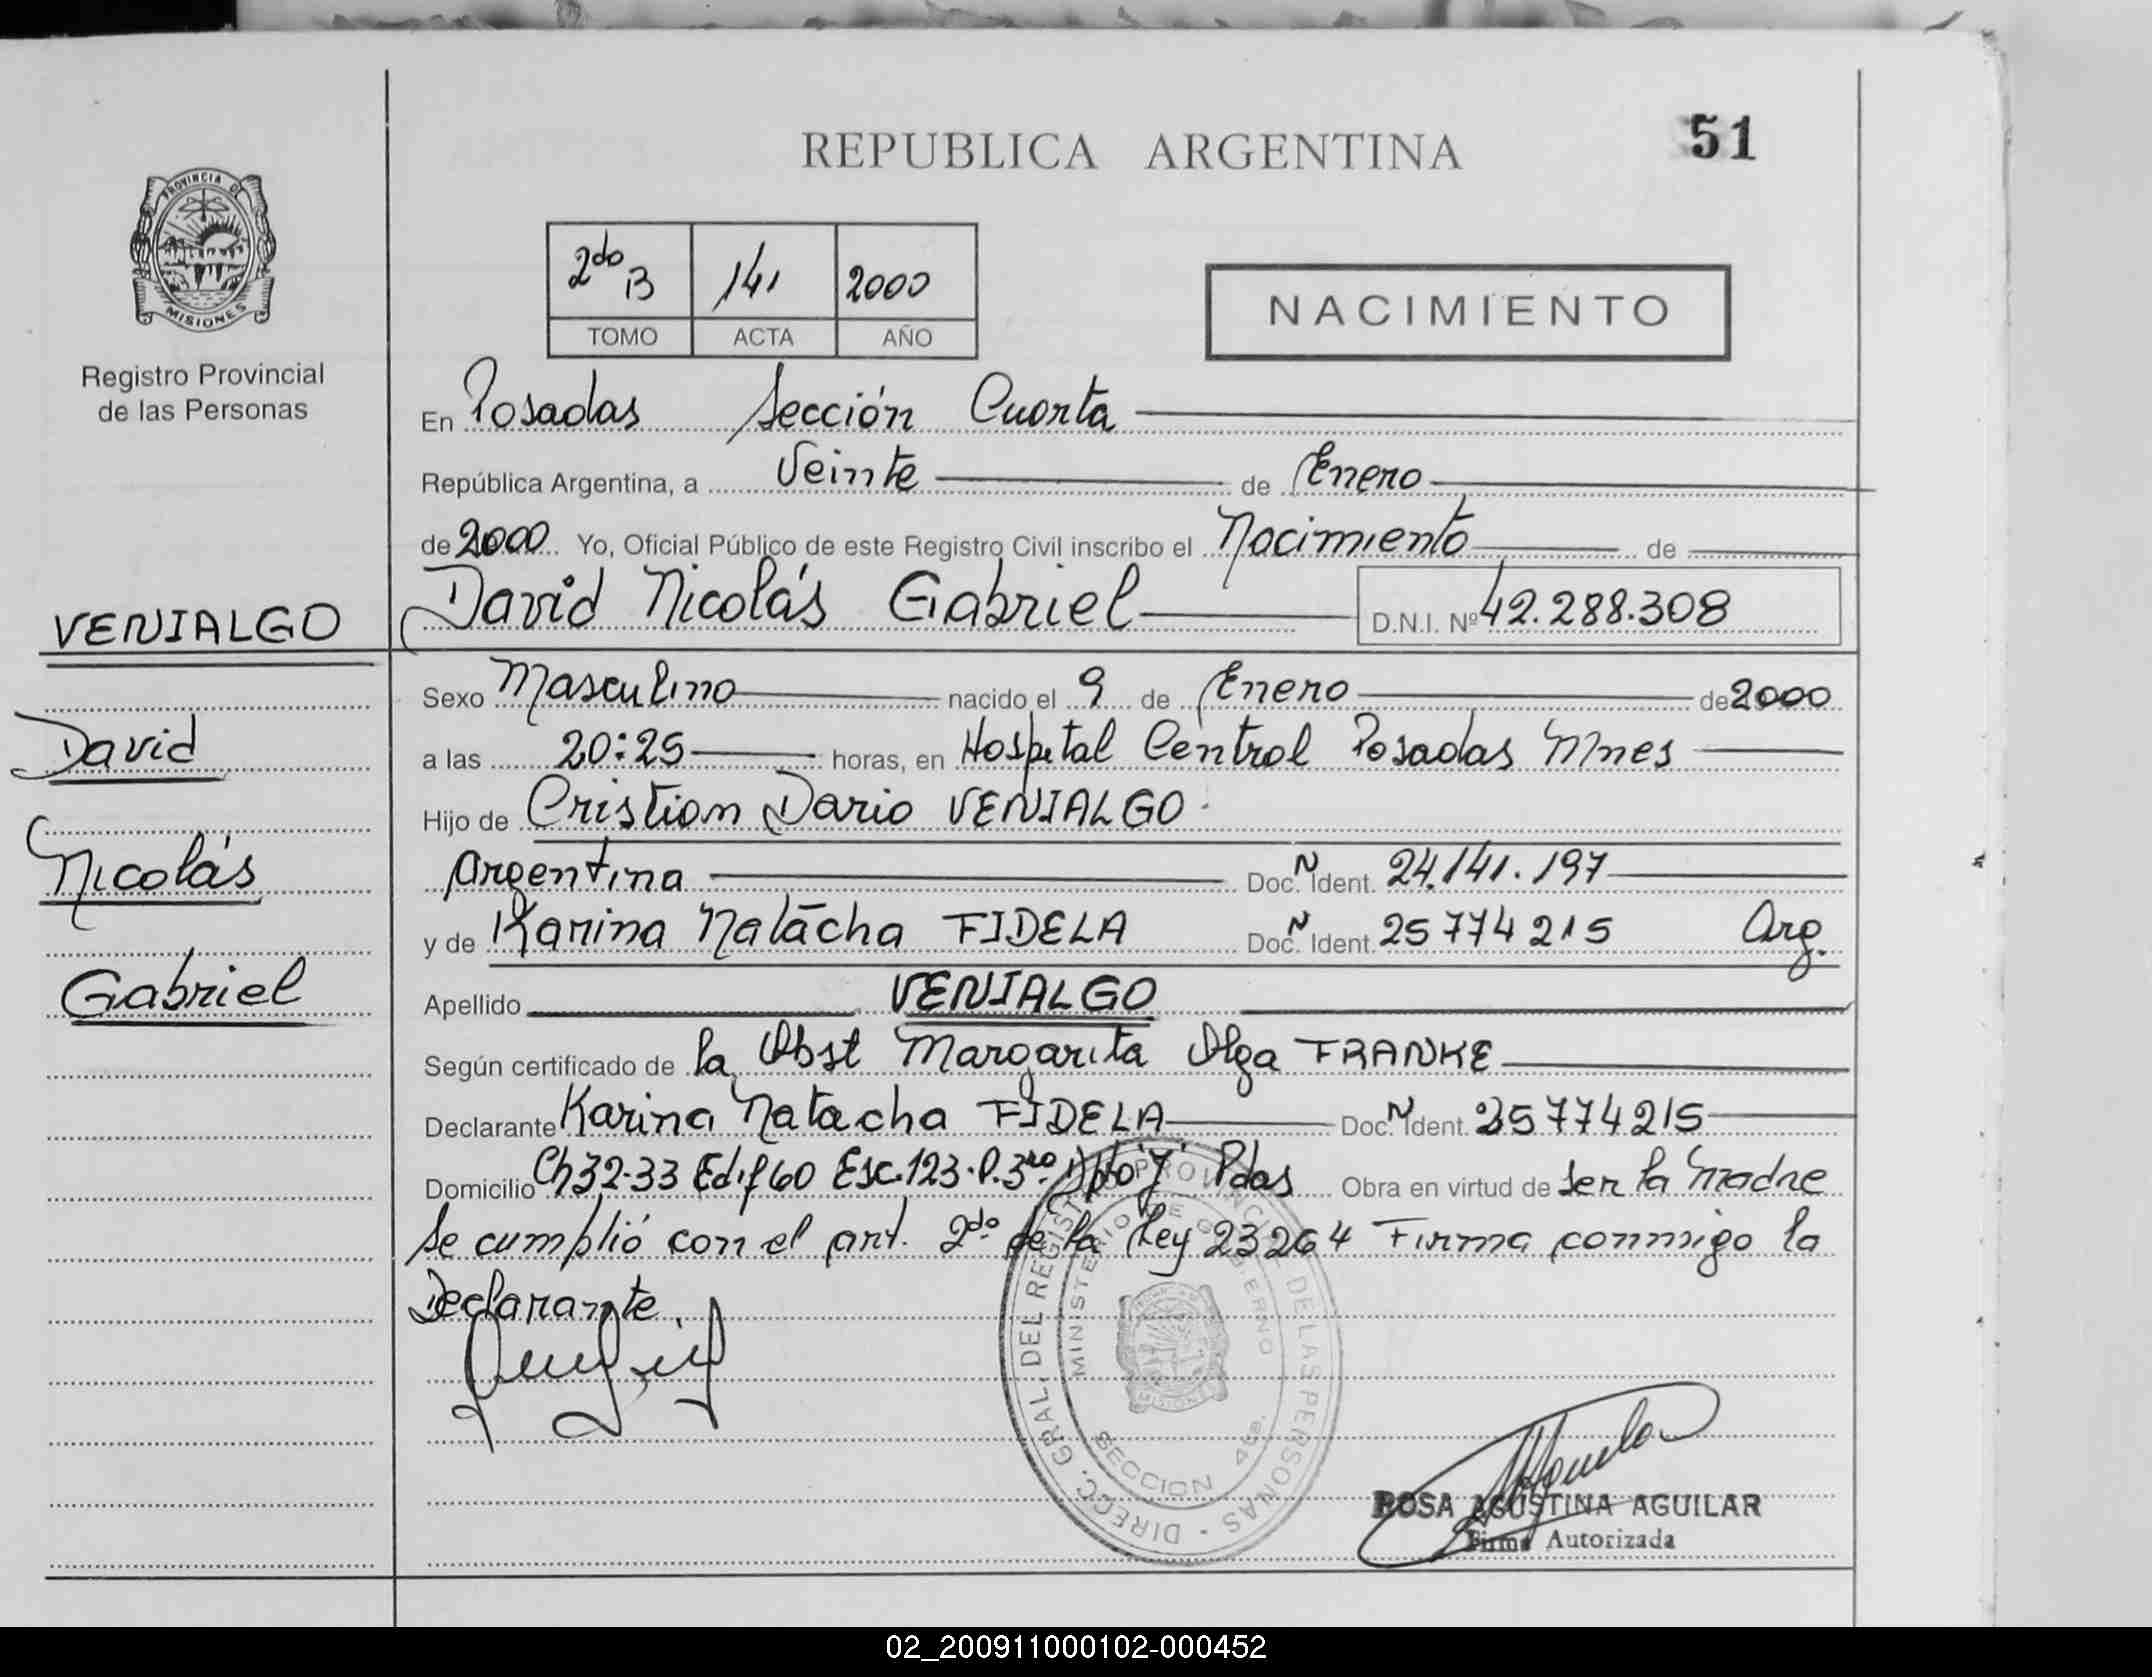 REPUBLICA ARGENTINA
51
PROVINCIA DE
MISIONES
Registro Provincial
de las Personas
2do B 141 2000
TOMO ACTA AÑO
NACIMIENTO
En Posadas Sección Cuarta
República Argentina, a Veinte de Enero
de 2000 Yo, Oficial Público de este Registro Civil inscribo el Nacimiento de
VENIALGO
David Nicolás Gabriel D.N.I. Nº 42.288.308
Sexo Masculino nacido el 9 de Enero de 2000
David
a las 20:25 horas, en Hospital Central Posadas Mnes
Hijo de Cristian Dario VENIALGO
Nicolás
Argentina Doc. N Ident. 24.141.197
y de Karina Natacha FIDELA Doc. N Ident. 25774215 Arg.
Gabriel
Apellido VENIALGO
Según certificado de la Obst Margarita Olga FRANKE
Declarante Karina Natacha FIDELA Doc. N Ident. 25774215
Domicilio Ch 32-33 Edif 60 Esc. 123-P. 3ro. Dpto "J" Pdas Obra en virtud de ser la Madre
Se cumplió con el art. 2do. de la Ley 23264 Firma conmigo la
Declarante.
DIRECC. GRAL. DEL REGISTRO PROVINCIAL DE LAS PERSONAS
MINISTERIO DE GOBIERNO
MISIONES
SECCION 4ta.
ROSA AGUSTINA AGUILAR
Firma Autorizada
02_200911000102-000452